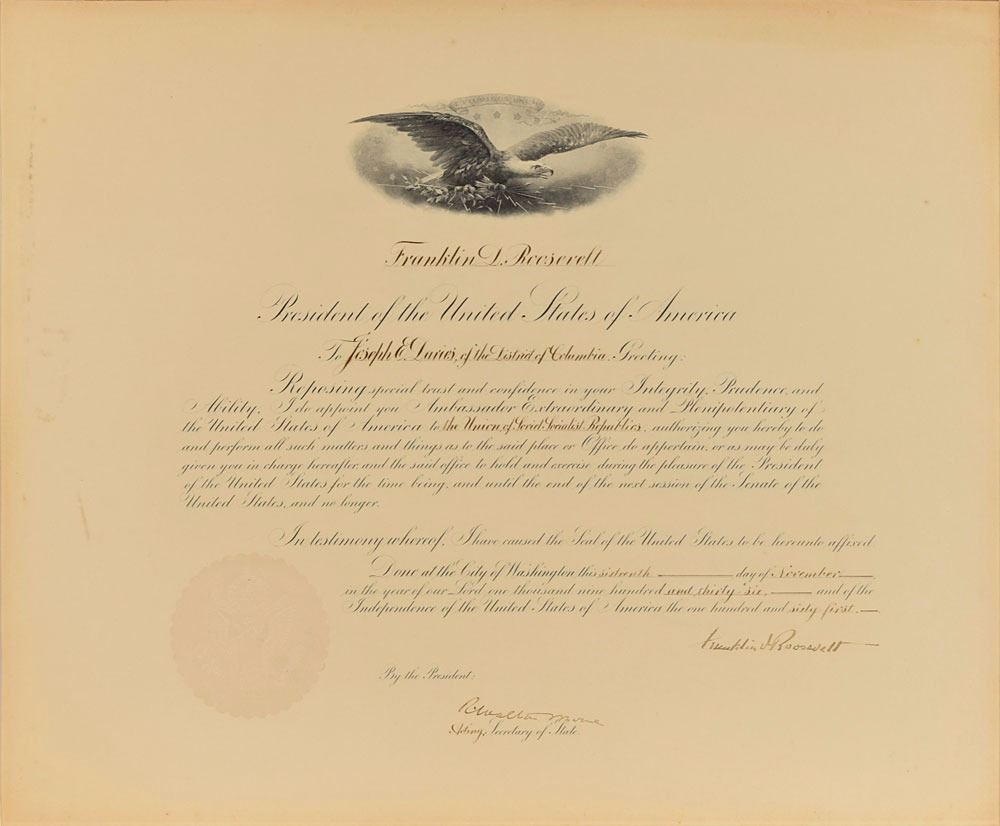 Franklin D. Roosevelt
President of the United States of America
To Joseph E. Davies, of the District of Columbia, Greeting:
Reposing special trust and confidence in your Integrity, Prudence, and
Ability, I do appoint you Ambassador Extraordinary and Plenipotentiary of
the United States of America to the Union of Soviet Socialist Republics, authorizing you hereby to do
and perform all such matters and things as to the said place or Office do appertain, or as may be duly
given you in charge hereafter, and the said office to hold and exercise during the pleasure of the President
of the United States for the time being, and until the end of the next session of the Senate of the
United States, and no longer.
In testimony whereof, I have caused the Seal of the United States to be hereunto affixed.
Done at the City of Washington this sixteenth day of November
in the year of our Lord one thousand nine hundred and thirty-six, and of the
Independence of the United States of America the one hundred and sixty-first.
Franklin D Roosevelt
By the President:
R. Walton Moore
Acting Secretary of State.